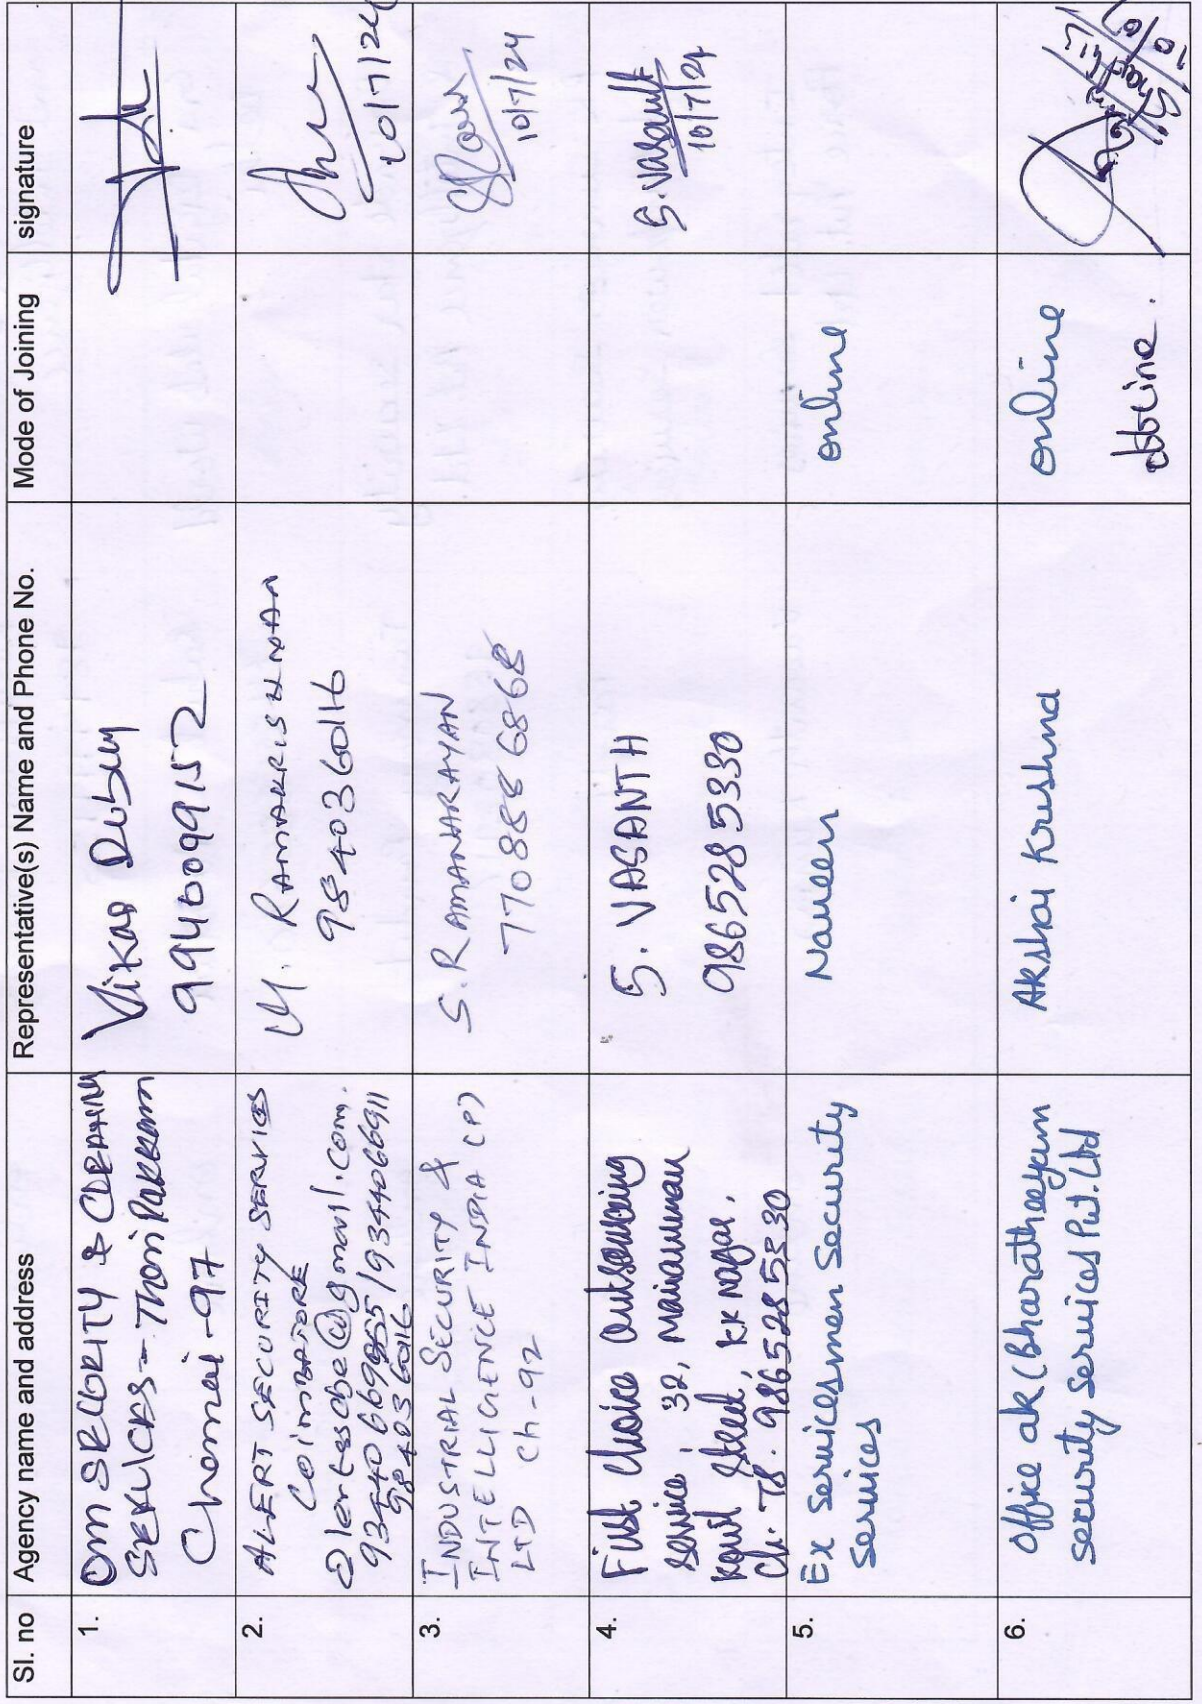 Sl. no Agency name and address Representative(s) Name and Phone No. Mode of Joining signature
1.
Om SECURITY & CLEANING
SERVICES - Thorai Pakkam
Chennai - 97
Vikas Dubey
9940099152
2.
ALERT SECURITY SERVICES
COIMBATORE
alertsscbe@gmail.com.
9344066
9840360116
M. RAMAKRISHNAN
9840360116
10/7/24
3.
INDUSTRIAL SECURITY &
INTELLIGENCE INDIA (P)
LTD Ch-92
S. RAMANARAYAN
7708886868
10/7/24
4.
First Choice Outsourcing
service, 32, Mariamman
Kovil Street, KK Nagar,
Ch. 78. 9865285330
S. VASANTH
9865285330
S. Vasanth
10/7/24
5.
Ex Servicesmen Security
Services
Naveen
online
6.
Office ak (Bharatheeyam
security Services Pvt. Ltd
Akshai Krishna
online
offline.